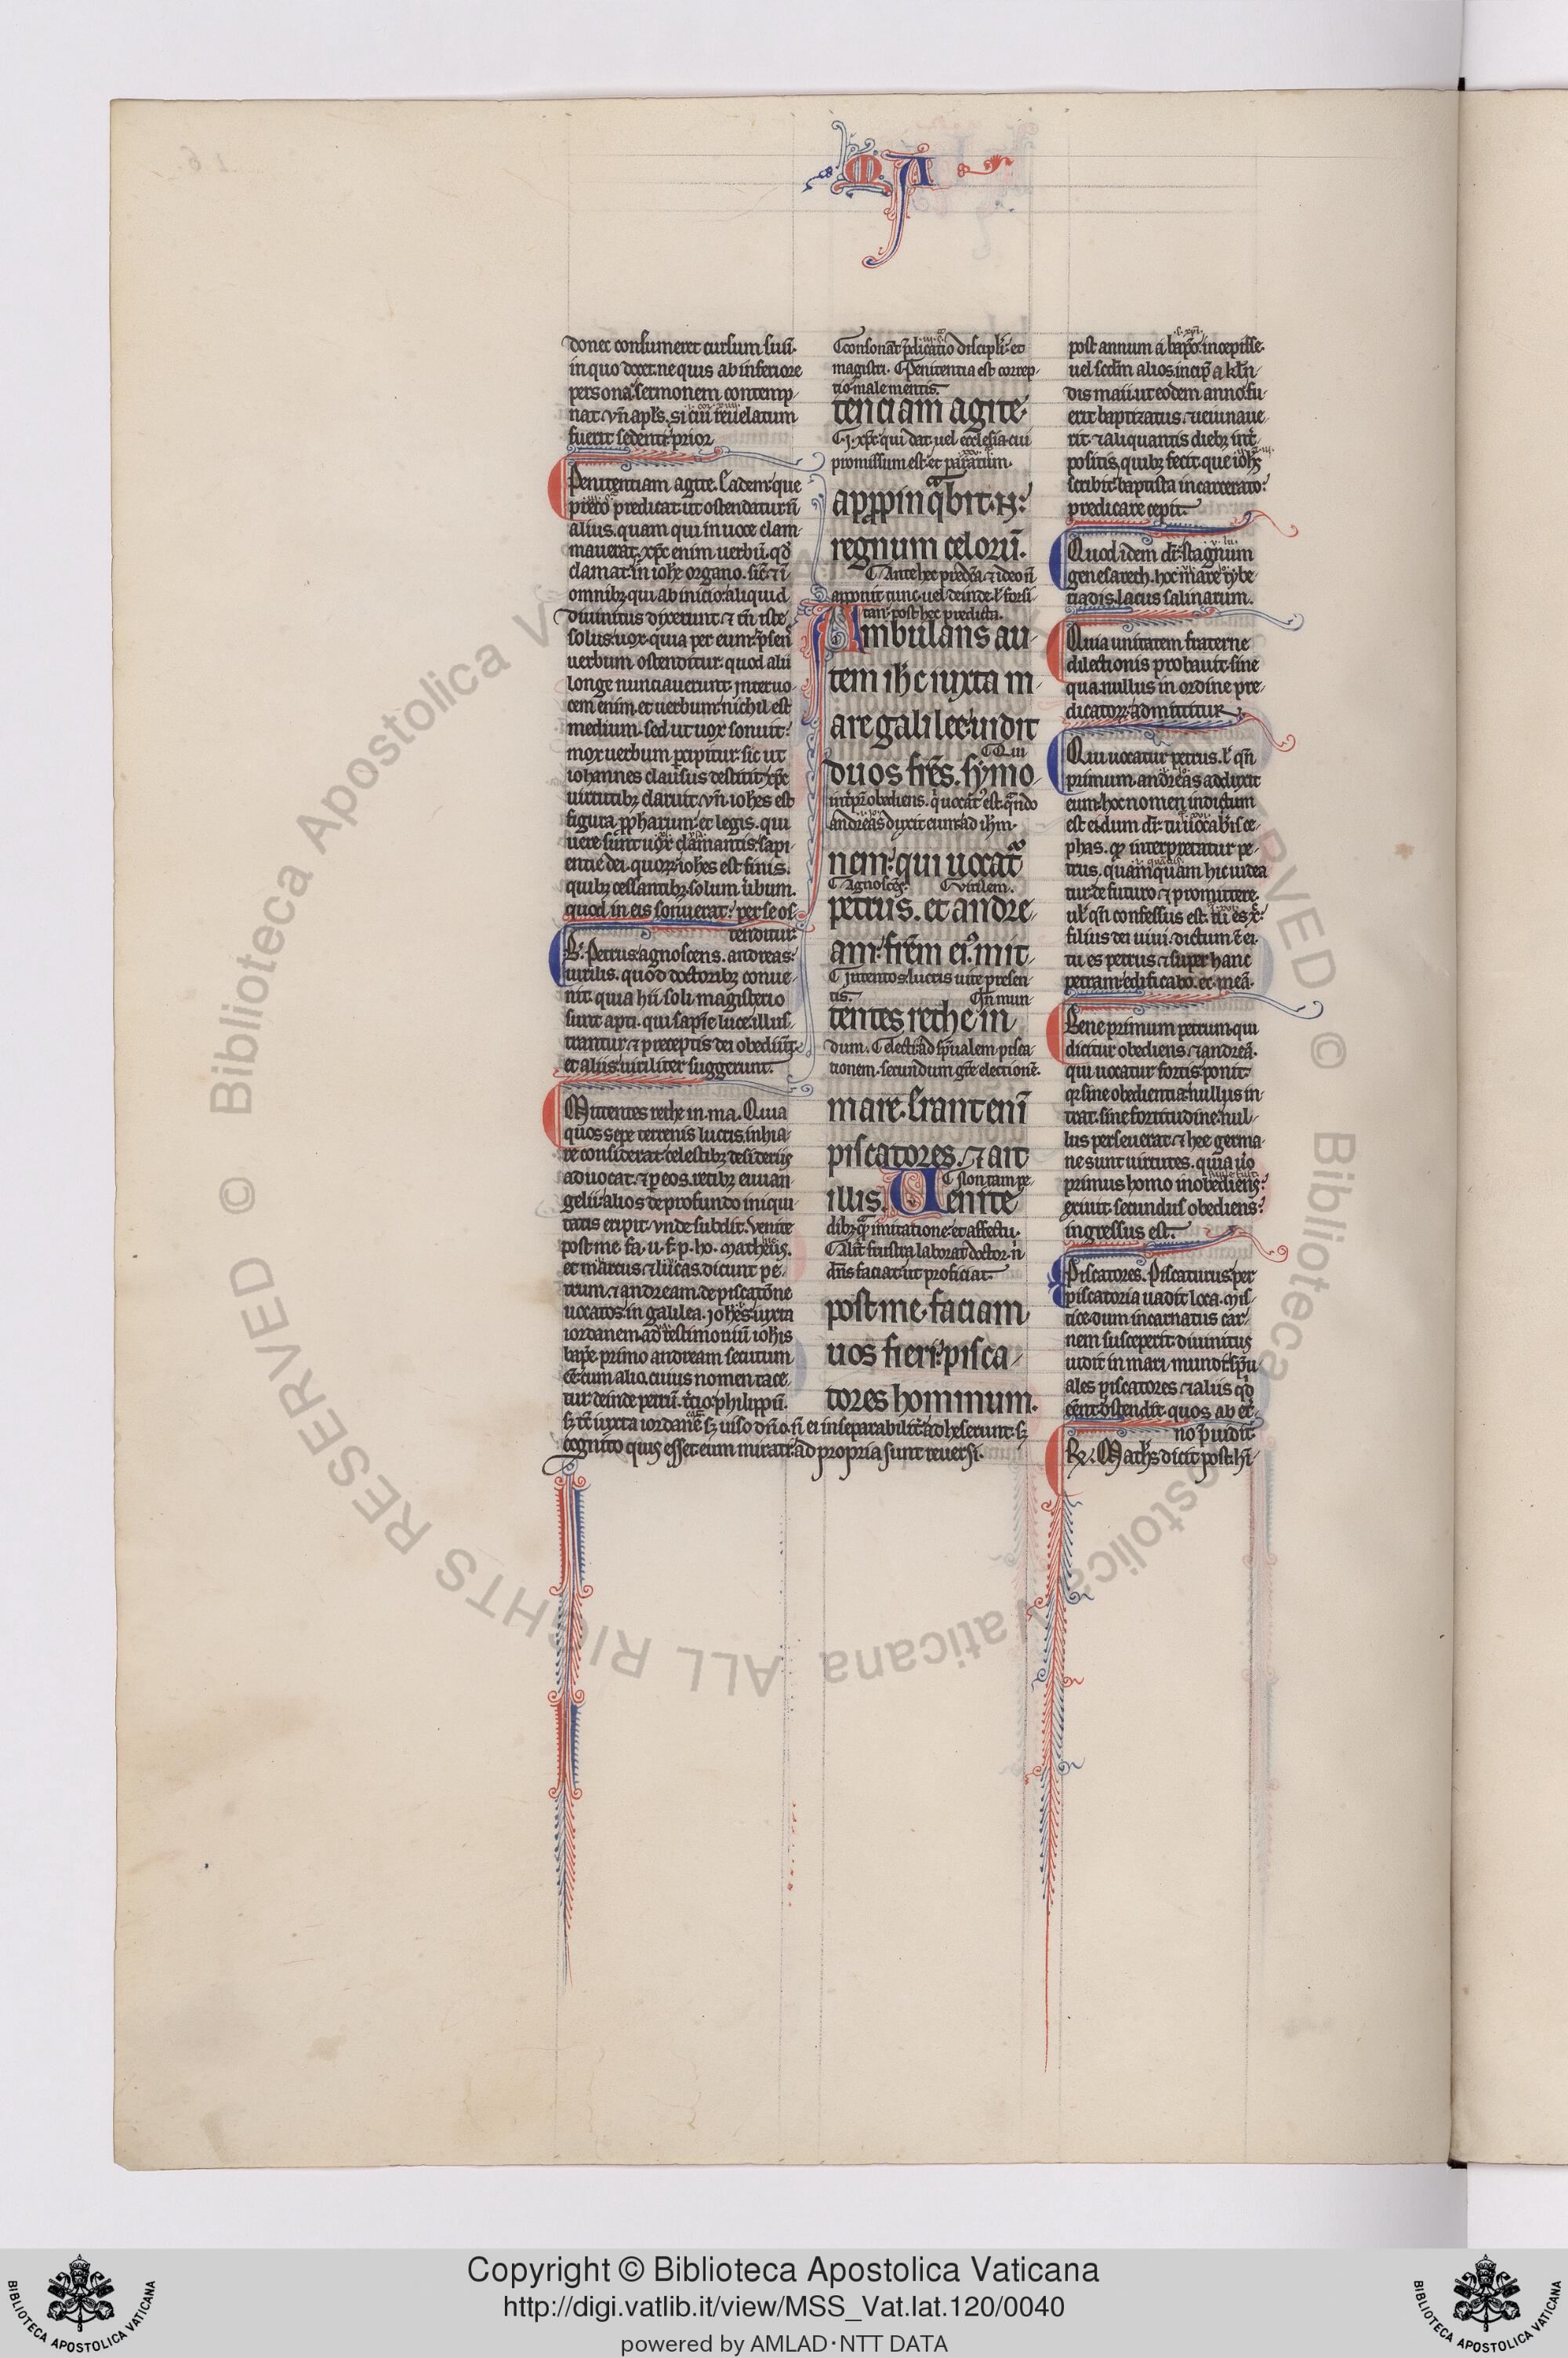 MA
donec consumeret cursum suū.
in quo docet. ne quis ab inferiore
persona sermonem contemp-
nat. vn̄ apl's. si cui reuelatum
fuerit sedenti. prior
Penitentiam agite. Eadem que
prius predicat. ut ostendatur n̄
alius. quam qui in uoce clam-
mauerat. xp̄c enim uerbū. qd̄
clamat in ioh̄e organo. sic̄ & ī
omnibꝫ qui ab inicio aliquid
diuinitus dixerunt. & tn̄ iste
solus uox. quia per eum p̄sens
uerbum ostenditur. quod alii
longe nunciauerunt. inter uo-
cem enim et uerbum nichil est
medium. sed ut uox sonuit:
mox uerbum p̱cipitur. sic ut
iohannes clausus destitit. xp̄c
uirtutibꝫ claruit. vn̄ ioh̄es est
figura ꝓphetarum et legis. qui
uere sunt uox clamantis sapi-
entie dei. quoꝝ ioh̄es est finis.
quibꝫ cessantibꝫ. solum u̇bum.
quod in eis sonuerat. per se os-
tenditur.
B. Petrus agnoscens. andreas:
uirilis. quod doctoribꝫ conue-
nit. quia hii soli magisterio
sunt apti. qui sapīe luce illus-
trantur. & preceptis dei obediūt
et aliis uiriliter suggerunt.
Mittentes rethe in. ma. Quia
quos sepe terrenis lucris inhia-
re considerat. celestibꝫ desideriis
aduocat. & p̱ eos. retibꝫ euuan-
gelii alios de profundo iniqui-
tatis eripit. vnde subdit. Venite
post me. fa. u. f. p. ho. Matheus.
et marcus & lucas dicunt pe-
trum & andream. de piscatōne
uocatos. in galilea. ioh̄es iuxta
iordanem. ad testimoniū ioh̄is
bapt̄e. primo andream secutum
eē. cum alio cuius nomen tace-
tur. deinde petrū. t̄cio philippū.
sꝫ tē iuxta iordanē sꝫ uiso dn̄o. n̄ ei inseparabilit̄ adheserunt. sꝫ
cognito quis esset eum mirati: ad propria sunt reuersi.
Consonat p̄dicatio discipli et
magistri. Penitentia est correp-
tio male mentis.
tenciam agite.
i. xp̄c qui dat. uel ecclesia cui
promissum est. et paratum.
apꝓpinq̄bit. n̄:
regnum celorū.
Ante hec predc̄a & ideo n̄
apponit tunc uel deinde. l' forsi-
tan post hec predicta.
Ambulans au-
tem ih̄c iuxta m-
are galilee: uidit
Qui
duos frēs. symo-
int̄p̄r obediens. q̇ uocat̄ est. qn̄do
andreas duxit eum ad ih̄m.
nem: qui uocat̄
Agnoscēs. Virilem.
petrus. et andre-
am: frēm eiꝰ. mit-
Intentos lucris uite presen-
tis. In mun-
tentes rethe in
dum. Electi ad sp̄ualem pisca-
tionem. secundum grē electionē.
mare. Erant enī
piscatores. & ait
Non tam pe-
illis. Uenite
dibꝫ q̄ imitatione et affectu.
Alit̄ frustra laborat doctor. n̄
dn̄s faciat ut proficiat.
post me. faciam
uos fieri: pisca-
tores hominum.
post annum a bapt̄o. incepisse.
uel secd̄m alios incip̄ a kl'n-
dis maii. ut eodem anno fu-
erit baptizatus. & ieiunaue-
rit. & aliquantis diebꝫ int̄-
positis. quibꝫ fecit. que ioh̄s
scribit. baptista incarcerato:
predicare cepit.
Quod idem dr̄. stagnum
genesareth. hoc mare tybe-
riadis. lacus salinarum.
Quia unitatem fraterne
dilectionis probauit. sine
qua nullus in ordine pre-
dicatoꝝ admittitur.
Qui uocatur petrus. l' qn̄
primum andreas adduxit
eum. hoc nomen inditum
est ei. dum dr̄. tu uocab'is ce-
phas. ꝙ interpretatur pe-
trus. quamquam hic uidea-
tur de futuro & promittere.
ul' qn̄ confessus est. tu es x̄:
filius dei uiui. dictum ē ei.
tu es petrus & super hanc
petram edificabo. ec. meā.
Bene primum petrum. qui
dicitur obediens. & andreā.
qui uocatur fortis ponit.
q̄ sine obedientia: nullus in-
trat. sine fortitudine nul-
lus perseuerat. & hee germa-
ne sunt uirtutes. quia u̇o
primus homo inobediens:
exiuit. secundus obediens:
ingressus est.
Piscatores. Piscaturus per
piscatoria uadit loca. mis-
tice dum incarnatus car-
nem susceperit. diuinitus
uidit in mari mundi. sp̄u-
ales piscatores & aliis qd̄
eēnt ostendit. quos ab et̄-
no p̄uidit.
R. Math's dicit post. hī-